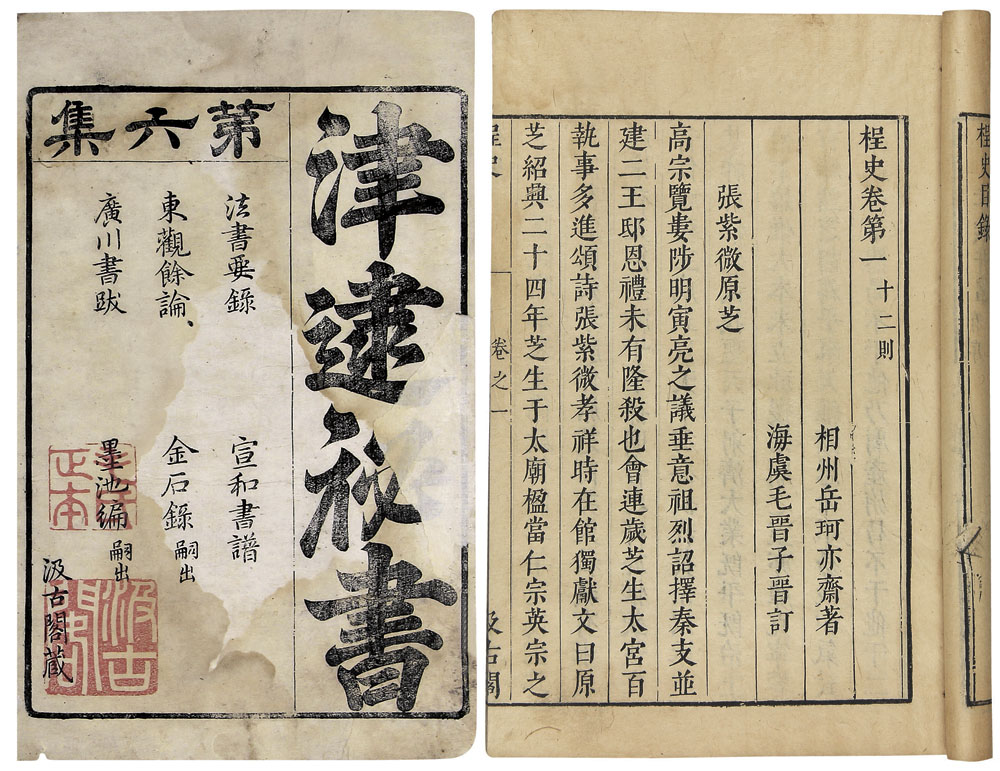 津逮祕書
苐六集
法書要錄 宣和書譜
東觀餘論 金石錄 嗣出
廣川書跋 墨池編 嗣出
汲古閣藏
正本
汲古閣
桯史目錄
桯史卷第一 十二則
相州岳珂亦齋著
海虞毛晉子晉訂
張紫微原芝
高宗覽婁陟明寅亮之議垂意祖烈詔擇秦支並
建二王邸恩禮未有隆殺也會連歲芝生太宮百
執事多進頌詩張紫微孝祥時在館獨獻文曰原
芝紹興二十四年芝生于太廟楹當仁宗英宗之
桯史 卷之一 汲古閣